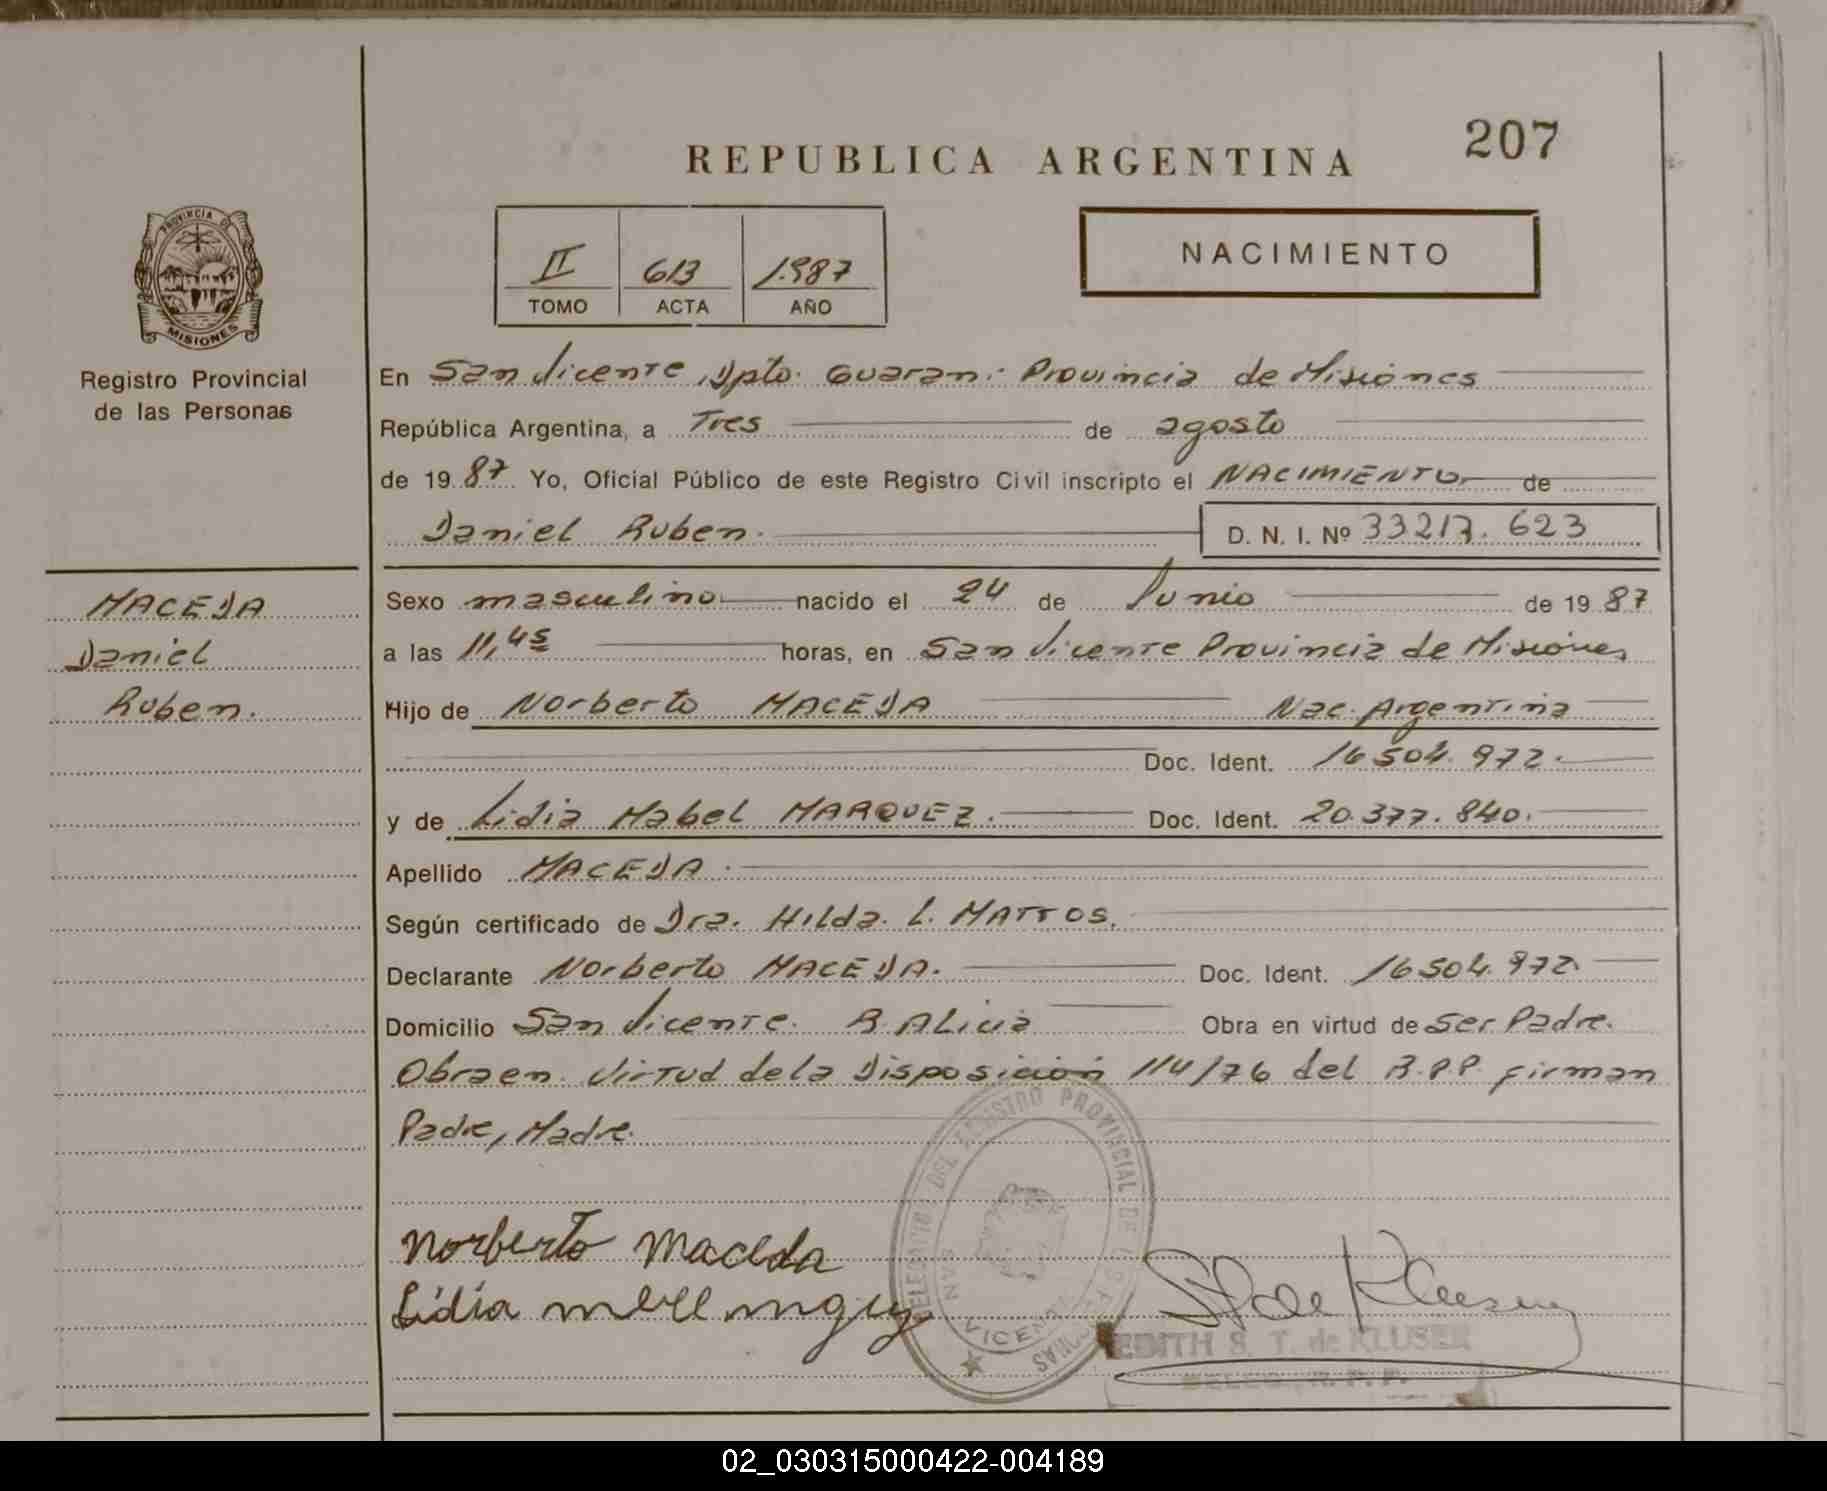 207
REPUBLICA ARGENTINA
PROVINCIA DE
MISIONES
Registro Provincial
de las Personas
II 613 1.987
TOMO ACTA AÑO
NACIMIENTO
En San Vicente, Dpto. Guarani Provincia de Misiones
República Argentina, a Tres de agosto
de 19 87 Yo, Oficial Público de este Registro Civil inscripto el NACIMIENTO de
Daniel Ruben. D. N. I. Nº 33217.623
MACEDA
Daniel
Ruben.
Sexo masculino nacido el 24 de Junio de 19 87
a las 11,45 horas, en San Vicente Provincia de Misiones
Hijo de Norberto MACEDA Nac. Argentina
Doc. Ident. 16504.972.
y de Lidia Mabel MARQUEZ. Doc. Ident. 20.377.840.
Apellido MACEDA.
Según certificado de Dra. Hilda. L. MATTOS.
Declarante Norberto MACEDA. Doc. Ident. 16504.972
Domicilio San Vicente. B. ALicia Obra en virtud de Ser Padre.
Obra en virtud de la Disposición 114/76 del R.P.P. firman
Padre, Madre.
DELEGACION DEL REGISTRO PROVINCIAL DE LAS PERSONAS
SAN VICENTE
Norberto Maceda
Lidia
EDITH S. T. de KLUSER
DELEG. R. P. P.
02_030315000422-004189